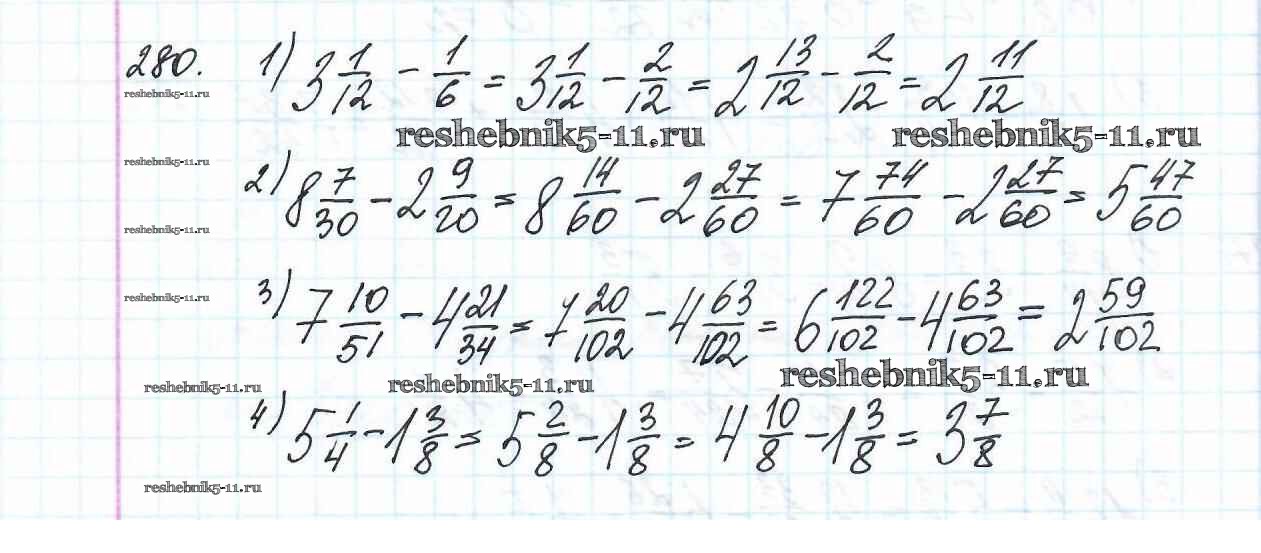 280. 1) 3 1/12 - 1/6 = 3 1/12 - 2/12 = 2 13/12 - 2/12 = 2 11/12
reshebnik5-11.ru
reshebnik5-11.ru reshebnik5-11.ru
reshebnik5-11.ru
2) 8 7/30 - 2 9/20 = 8 14/60 - 2 27/60 = 7 74/60 - 2 27/60 = 5 47/60
reshebnik5-11.ru
reshebnik5-11.ru
3) 7 10/51 - 4 21/34 = 7 20/102 - 4 63/102 = 6 122/102 - 4 63/102 = 2 59/102
reshebnik5-11.ru reshebnik5-11.ru reshebnik5-11.ru
4) 5 1/4 - 1 3/8 = 5 2/8 - 1 3/8 = 4 10/8 - 1 3/8 = 3 7/8
reshebnik5-11.ru